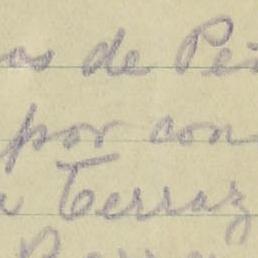 os de Pei
por con
a Terraz